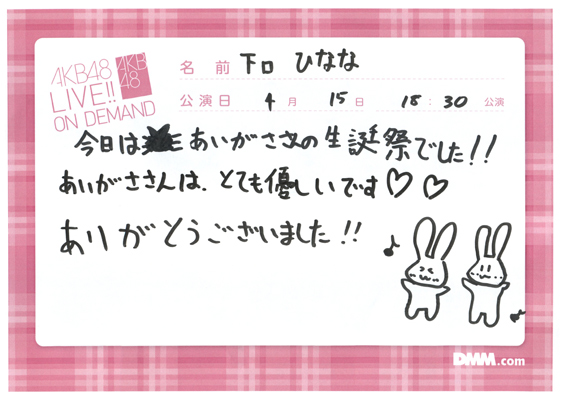 AKB48
LIVE!!
ON DEMAND
AKB
48
名前 下口 ひなな
公演日 4月 15日 18:30 公演
今日は あいがささんの生誕祭でした!!
あいがささんは、とても優しいです♡♡
ありがとうございました!!
DMM.com